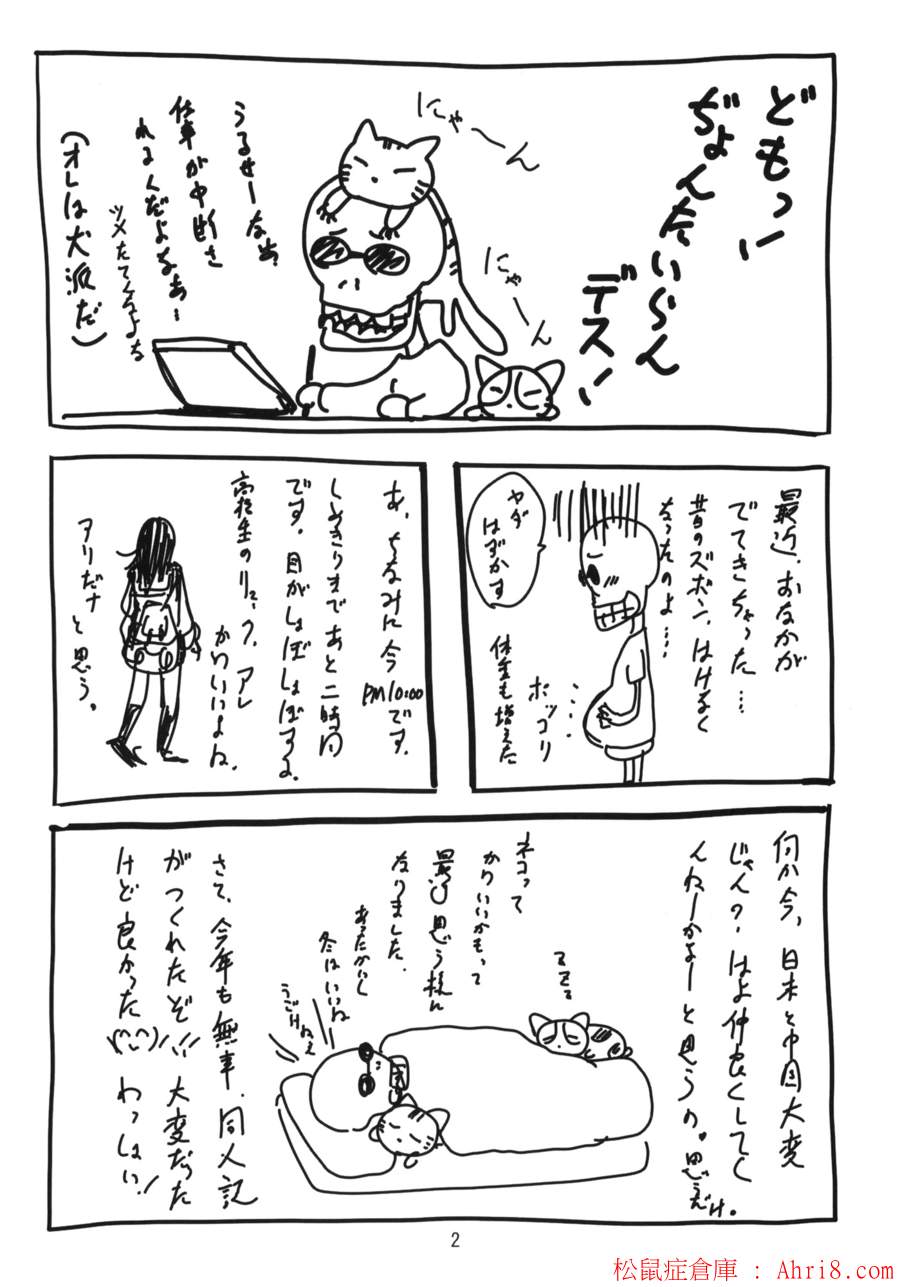 どもっ!
ぢょんたいらん
デスッ
にゃーん
にゃーん
うるせーなぁ
仕事が中断さ
れるくだよなぁ…
ツメたてんなよな
(オレは犬派だ)
最近、おなかが
でてきちゃった…
昔のズボン、はけなく
なったのよ…
ヤダ
はずかす
ポッコリ
体重も増えた
あ、ちなみに今
PM10:00です。
しめきりまであと二時間
です。目がしょぼしょぼするよ
高校生のリュック、アレ
かわいいよね。
アリだナと思う。
何か今、日本と中国大変
じゃん?はよ仲良くしてく
んねーかなーと思うの。思うだけ。
ネコって
かわいいかもって
最近思う様に
なりました。
あったかいし
冬はいいねー
うごけねぇ
さて、今年も無事、同人記
がつくれたぞ!! 大変だった
けど良かった\(^^)/ わっしょい!
2
松鼠症倉庫 : Ahri8.com